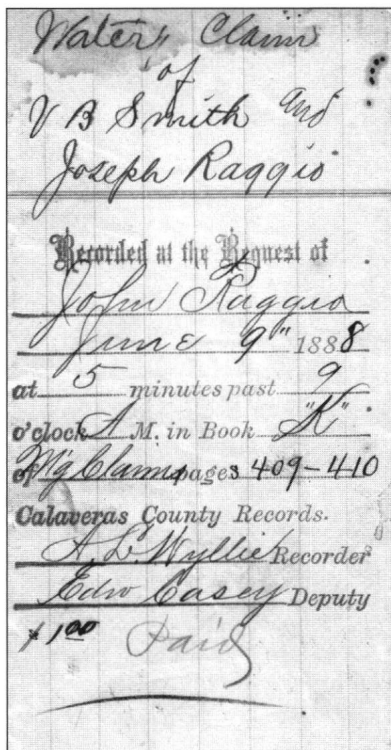 Water Claim
of
V B Smith and
Joseph Raggio
Recorded at the Request of
John Raggio
June 9" 1888
at 5 minutes past 9
o'clock A M. in Book "K"
of M'g Claims pages 409-410
Calaveras County Records.
A. L. Wyllie Recorder
Edw Casey Deputy
$1.00 Paid